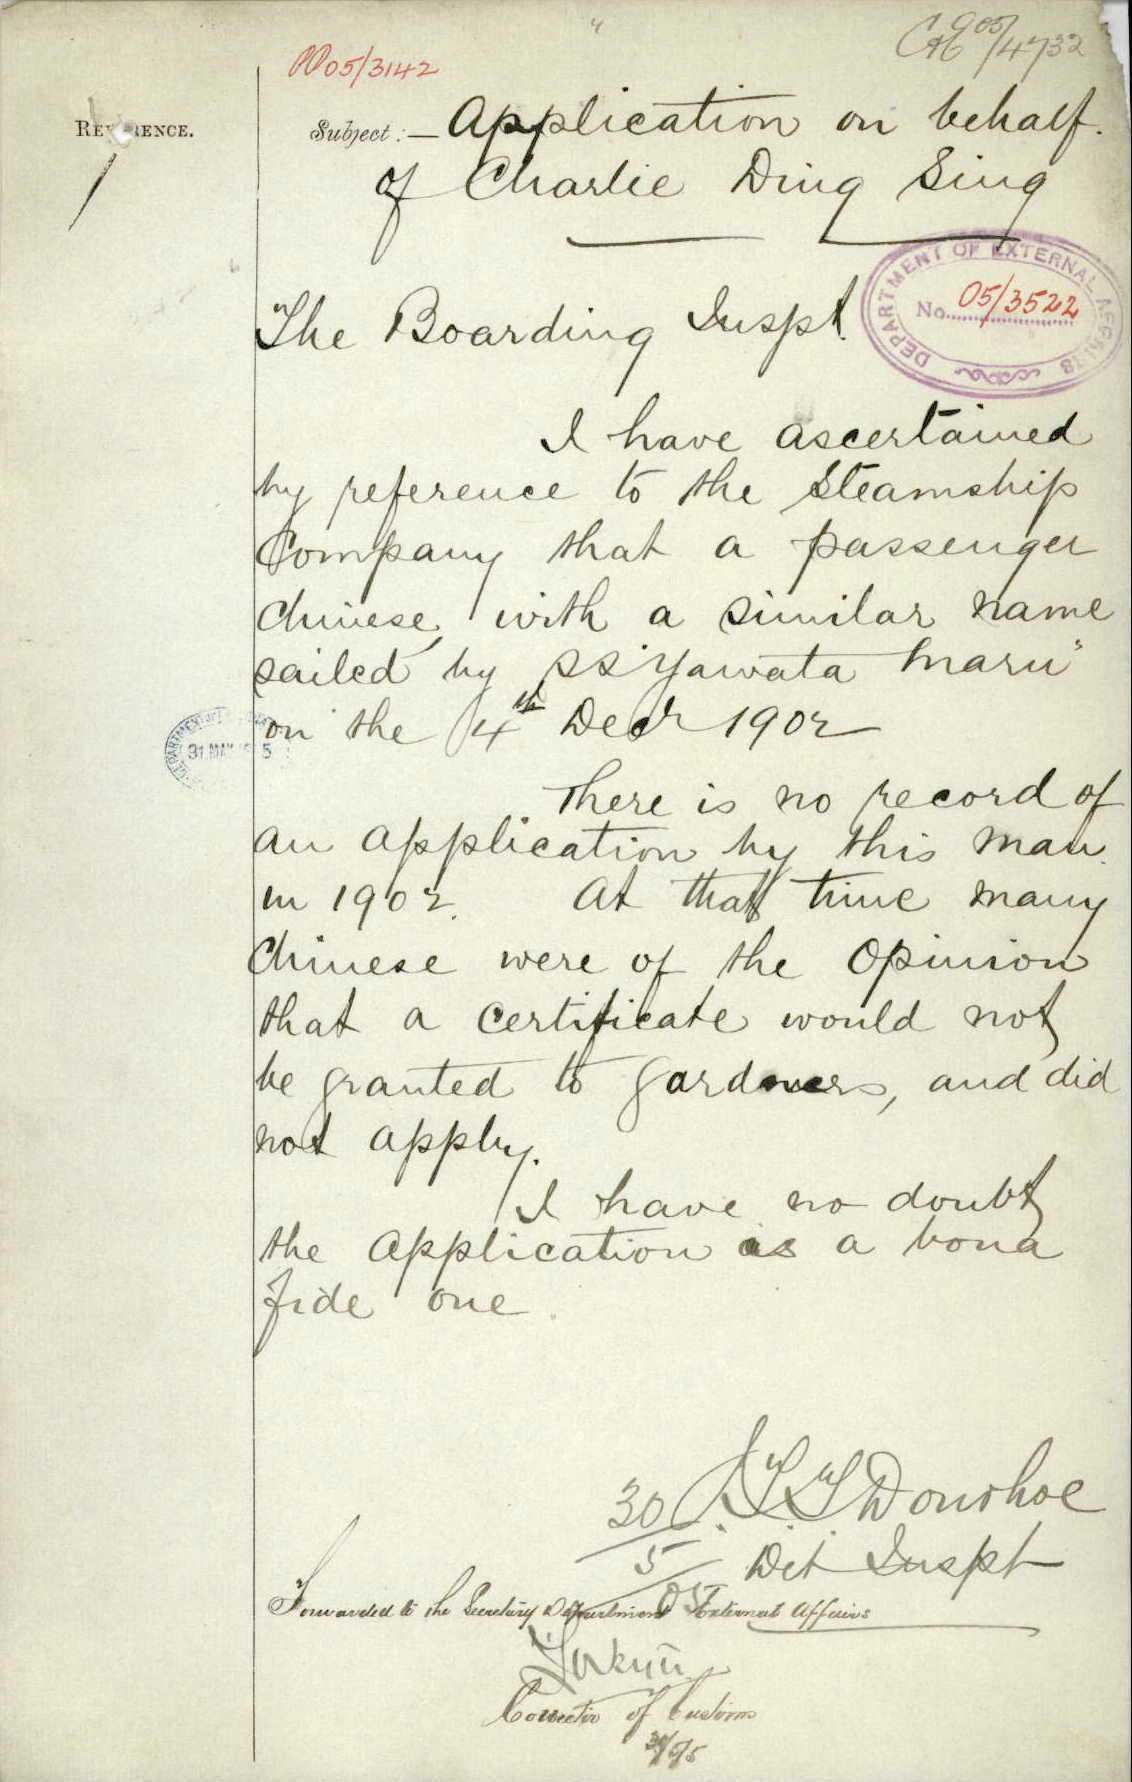 05/4732
05/3142
REFERENCE.
Subject:— Application on behalf.
of Charlie Ding Sing
DEPARTMENT OF EXTERNAL AFFAIRS
No. 05/3522
The Boarding Inspt.
I have ascertained
by reference to the Steamship
Company that a passenger
Chinese, with a similar name
sailed by SS "Yawata Maru"
on the 4th Decr 1902
31 MAY 1905
There is no record of
an application by this man
in 1902. At that time many
Chinese were of the opinion
that a certificate would not
be granted to gardners, and did
not apply.
I have no doubt
the application is a bona
fide one.
Donohoe
30/5/05 Det Inspt
Forwarded to the Secretary Department External Affairs
Collector of Customs
30/5/5